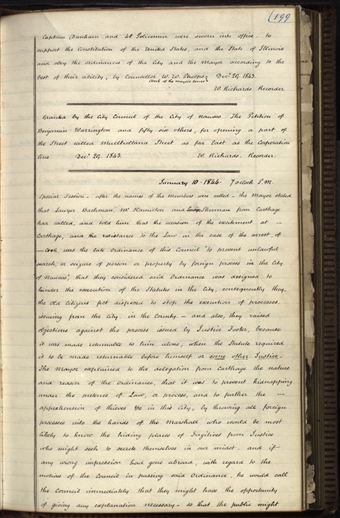 (199
Captain Dunham and Lt Follansbee were sworn into office to
support the Constitution of the United States, and the State of Illinois
and obey the ordinances of the City and the Mayor according to the
best of their ability, by Councillor W. W. Phelps, Decr 29. 1843.
Clerk of the Mayor's Court
W. Richards. Recorder
Granted by the City Council of the City of Nauvoo The Petition of
Benjamin Warrington and fifty six others, for opening a part of
the Street called Mulholland Street as far East as the Corporation
line Decr 29. 1843. W. Richards. Recorder.
January 10 1844 7 o'clock P.M.
Special Session, after the names of the members were called, the Mayor stated
that Lawyer Backman, Mr Hamilton and Sherman from Carthage
has called, and told him that the occasion of the excitement at
Carthage, and the resistance to the Law in the case of the arrest of
Cook, was the late Ordinance of this Council "to prevent unlawful
search or seizure of person or property by foreign process in the City
of Nauvoo", that they considered said Ordinance was designed to
hinder the execution of the Statutes in this City, consequently they,
the old Citizens felt disposed to stop the execution of processes
issuing from the City, in the County - and also, they raised
objections against the process issued by Justice Foster, because
it was made returnable to him alone, when the Statute required
it to be made returnable before himself or some other Justice.
The Mayor explained to the delegation from Carthage the nature
and reason of the Ordinance, that it was to prevent kidnapping
under the pretence of Law, or process, and to further the
apprehension of thieves &c in this City, by throwing all foreign
processes into the hands of the Marshall who would be most
likely to know the hiding places of Fugitives from Justice
who might seek to secrete themselves in our midst, and if
any wrong impression had gone abroad, with regard to the
motives of the Council in passing said Ordinance, he would call
the Council immediately that they might have the opportunity
of giving any explanation necessary - so that the public might